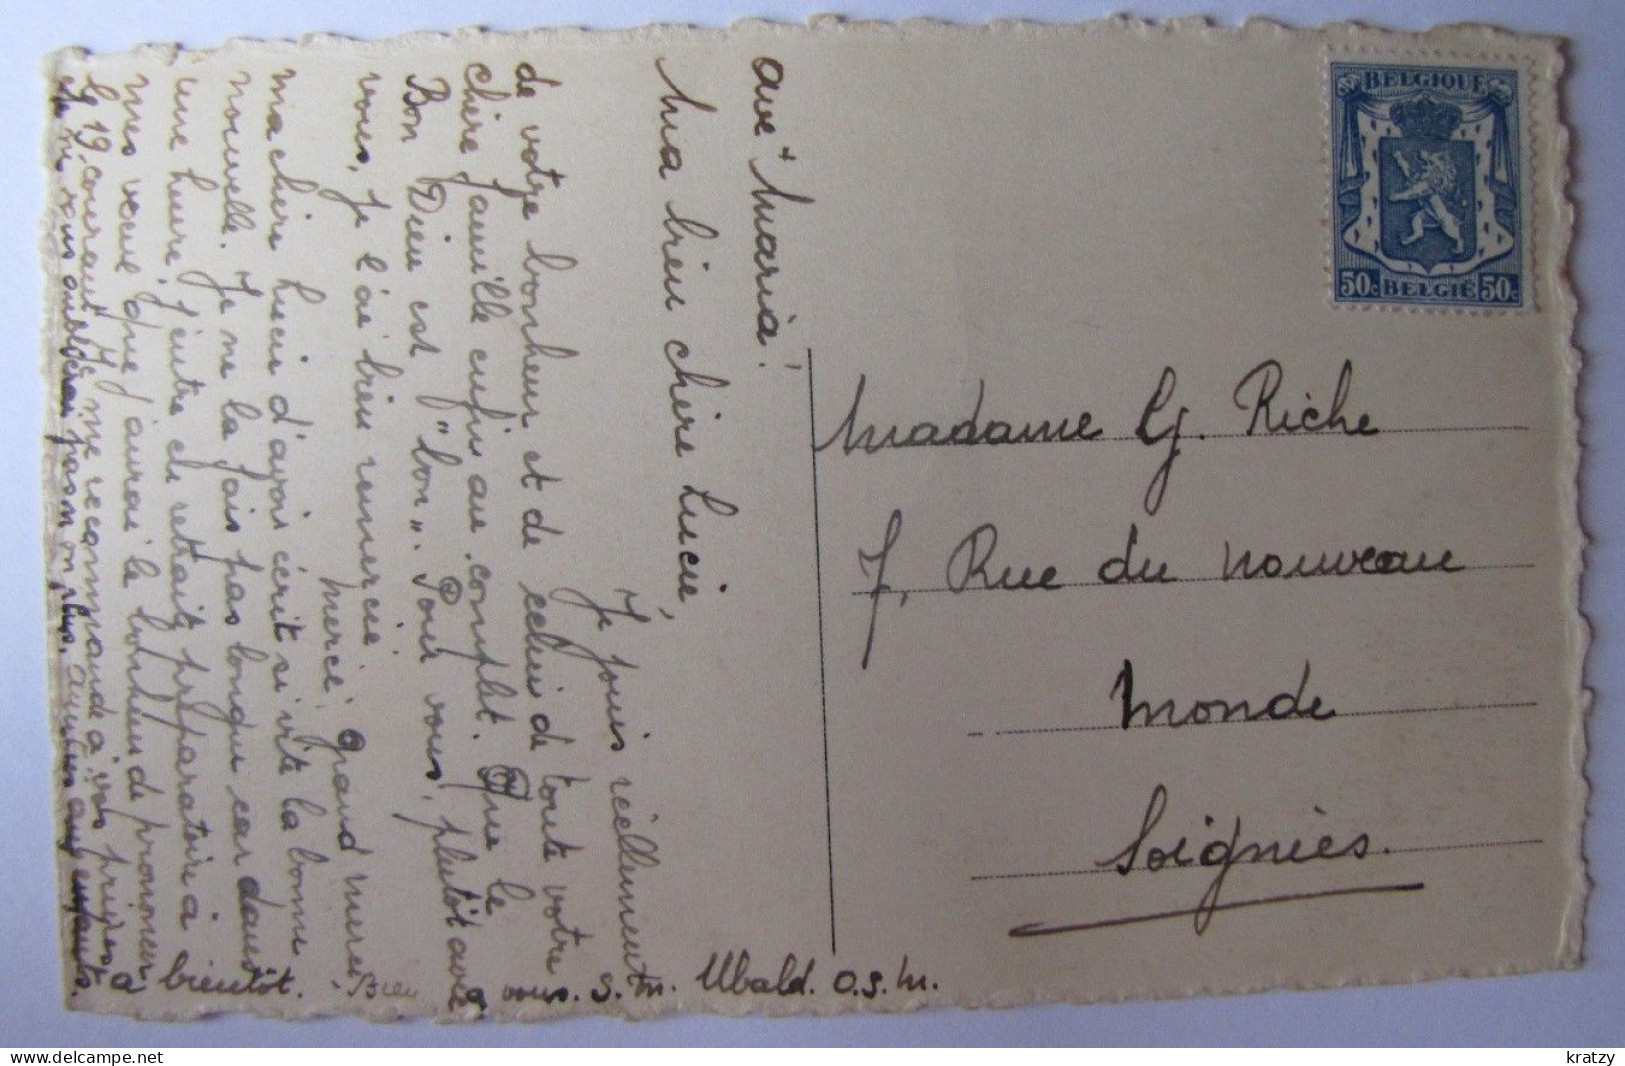 ave + Maria!
Ma bien chère Lucie,
Je jouis réellement
de votre bonheur et de celui de toute votre
chère famille enfin au complet. Que le
Bon Dieu est "bon". Pour vous, plutôt avec
vous, je l'ai bien remercié.
Merci, grand merci
ma chère Lucie d'avoir écrit si vite la bonne
nouvelle. Je ne la fais pas longue car dans
une heure, j'entre en retraite préparatoire à
mes vœux que j'aurai le bonheur de prononcer
le 19 courant. Je me recommande à vos prières
Je ne vous oublierai pas non plus, aux enfants.
à bientôt. Bien à vous. S. M. Ubald. o.s.m.
BELGIQUE
50c BELGIE 50c
Madame G. Riche
7, Rue du Nouveau
Monde
Soignies.
kratzy